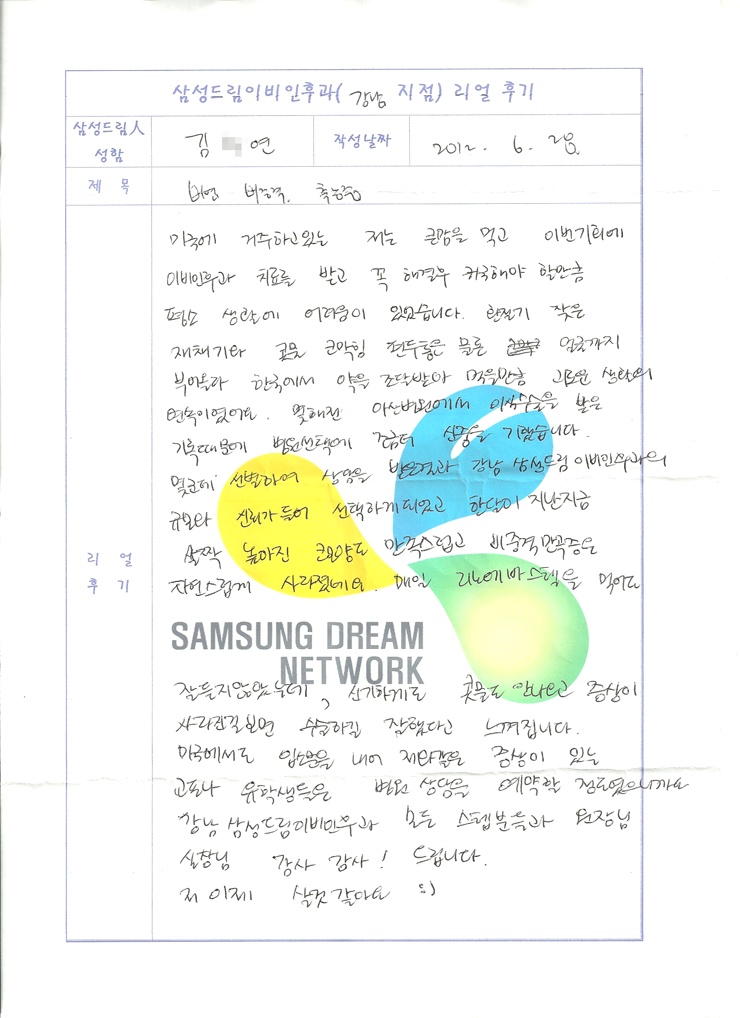 삼성드림이비인후과( 강남 지점) 리얼 후기
삼성드림人 성함
김 연
작성날짜
2012. 6.
제 목
비염 비중격. 축농증
리 얼 후 기
미국에 거주하고있는 저는 큰맘을 먹고 이번기회에
이비인후과 치료를 받고 꼭 해결후 귀국해야 할만큼
평소 생활에 어려움이 있었습니다. 환절기 잦은
재채기와 콧물 코막힘 편두통은 물론 얼굴까지
부어올라 한국에서 약을 조달받아 먹을만큼 고로운 생활의
연속이였어요. 몇해전 아산병원에서 이식수술을 받은
기록때문에 병원선택에 좀더 신중을 기했습니다.
몇군데 선별하여 상담을 받은결과 강남 삼성드림이비인후과의
규모와 신뢰가들어 선택하게되었고 한달이 지난지금
살짝 높아진 코모양도 만족스럽고 비중격만곡증은
자연스럽게 사라졌네요. 매일 을 먹어도
SAMSUNG DREAM
NETWORK
잘듣지않았는데, 신기하게도 콧물도 안나오고 증상이
사라진걸보면 수술하길 잘했다고 느껴집니다.
미국에서도 입소문을 내어 저와같은 증상이 있는
교포나 유학생들은 병원 상담을 예약할 정도였으니까요
강남 삼성드림이비인후과 모든 스텝분들과 원장님
실장님 감사 감사! 드립니다.
저 이제 살것 같아요 :)